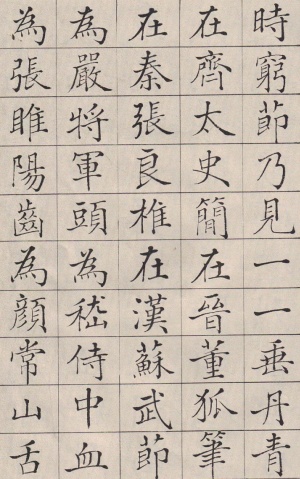 時窮節乃見一一垂丹青
在齊太史簡在晉董狐筆
在秦張良椎在漢蘇武節
為嚴將軍頭為嵇侍中血
為張睢陽齒為顏常山舌